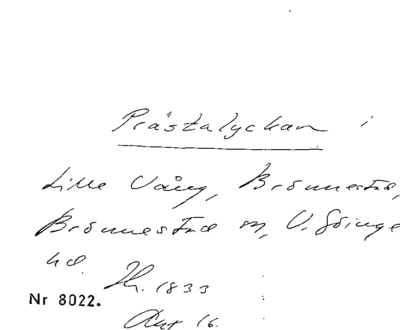 Prästalyckan i
Lille Vång, Brönnestad,
Brönnestad sn, V. Göinge
hd. Th. 1833
Nr 8022.
Akt 16.